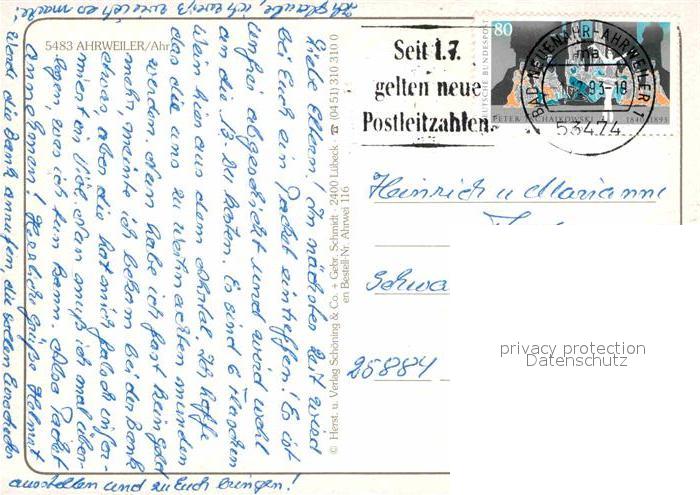 5483 AHRWEILER/Ahr
Liebe Eltern! In nächster Zeit wird
bei Euch ein Paket eintreffen! Es ist
Unfrei abgeschickt und wird wohl
an die 13.- zu kosten. Es sind 6 Flaschen
Wein hier aus dem Ahrtal. Ich hoffe
das die uns zu Weihnachten munden
werden. Nun habe ich fast kein Geld
mehr, meinte ich bekam bei der Bank
etwas aber die hat mich falsch infor-
miert en Vieh. Nun muß ich mal über-
legen, was ich tun kann. Also Paket
annehmen! Herzliche Grüße Helmut
Werde die Bank anrufen, die sollen Euroschecks
ausstellen und zu Euch bringen!
Ich glaube, ich weiß wie ich es mache!
© Herst. u. Verlag Schöning & Co. + Gebr. Schmidt · 2400 Lübeck · ☎ (04 51) 310 310 0
en Bestell-Nr. Ahrwei 116
Seit 1.7.
gelten neue
Postleitzahlen.
80
DEUTSCHE BUNDESPOST
PETER TSCHAIKOWSKY 1840-1893
BAD NEUENAHR-AHRWEILER 1
ma
93-18
53474
Heinrich u Marianne
Schwa
25884
privacy protection
Datenschutz